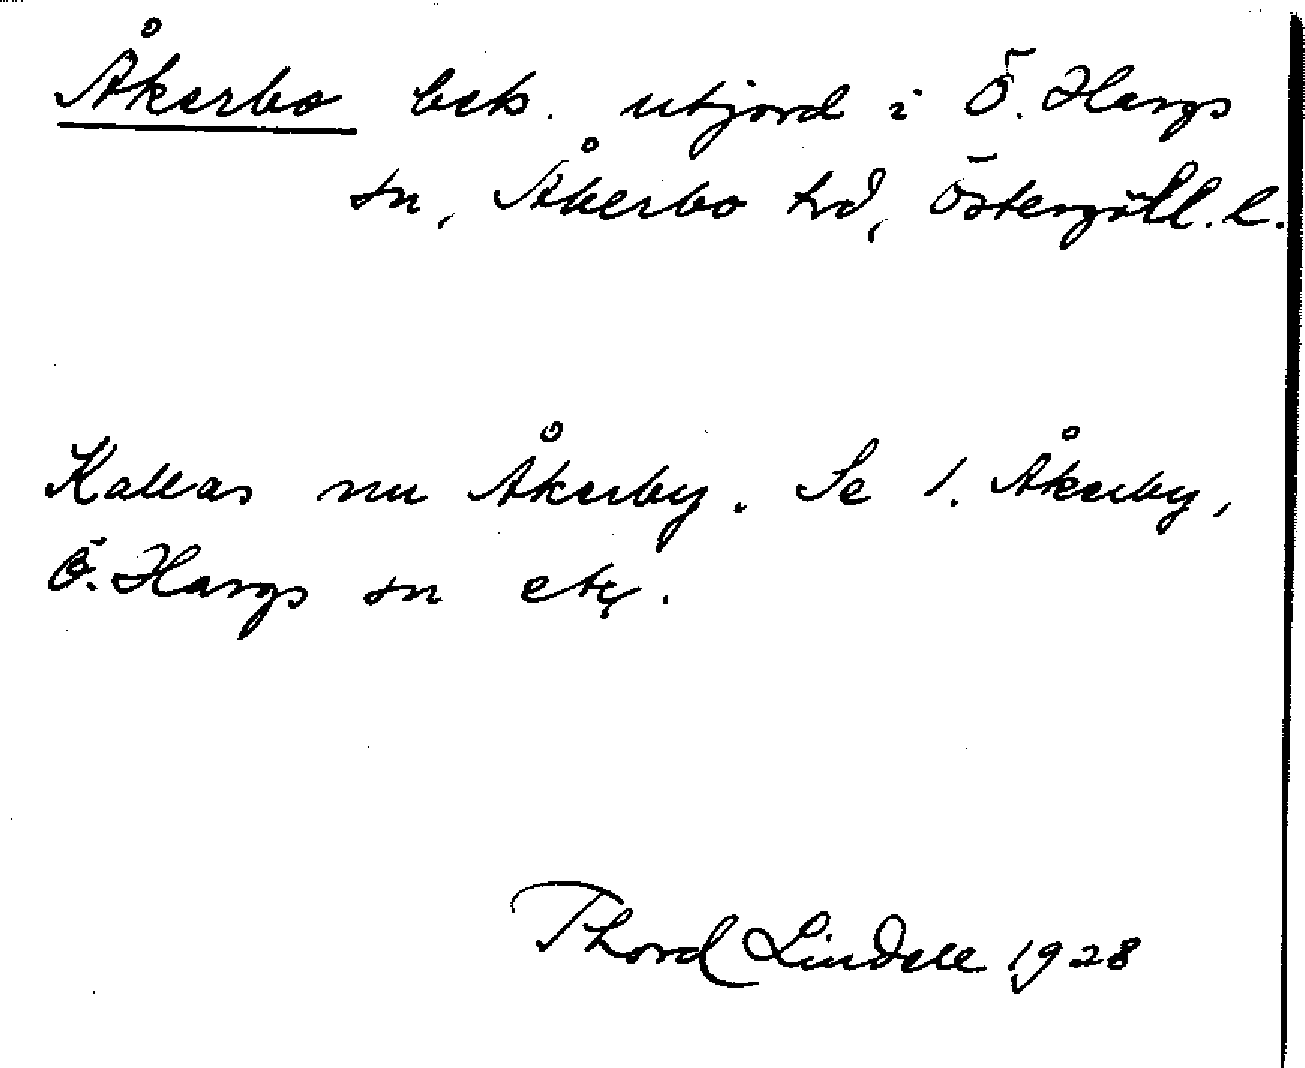 Åkerbo beb. utjord i Ö. Hargs
sn, Åkerbo hd, Östergötl. l.
Kallas nu Åkerby. Se 1. Åkerby,
Ö. Hargs sn etc.
Thord Lindell 1928